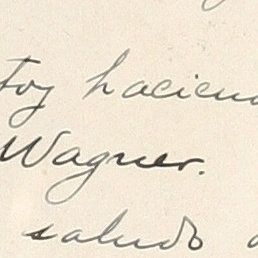 toy haciend
Wagner.
saludo a